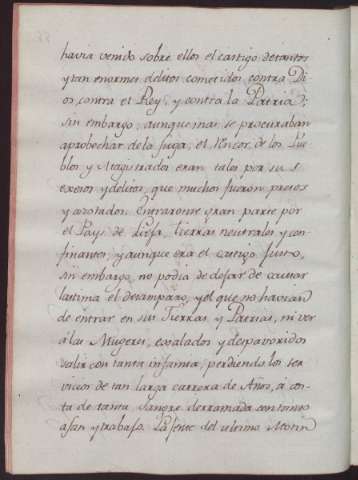 havia venido sobre ellos el castigo de tantos
y tan enormes delitos cometidos contra Di-
os, contra el Rey, y contra la Patria;
sin embargo, aunque mas se procuraban
aprobechar de la fuga, el rencor de los Pu-
blos y Magistrados eran tales por sus
excesos y delitos, que muchos fueron presos
y azotados. Entraronse gran parte por
el Pays de Lieja, tierras neutrales y con-
finantes, y aunque era el castigo justo,
sin embargo, no podia de dejar de causar
lastima el desamparo, y el que no havian
de entrar en sus Tierras y Patrias, ni ver
á sus Mugeres, exsalados y despavoridos
salir con tanta infamia, perdiendo los ser
vicios de tan larga carrera de Años, á cos-
ta de tanta sangre derramada con tanto
afan y trabajo. La gente del ultimo Motin